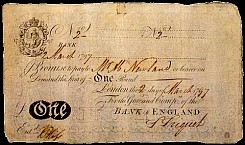 No 2 No 2
BANK
2 March 1797
I Promise to pay to Mr Abm Newland or bearer on
Demand the Sum of One Pound
London the 2 day of March 1797
For the Govr and Compa of the
BANK of ENGLAND
£ One
Entd